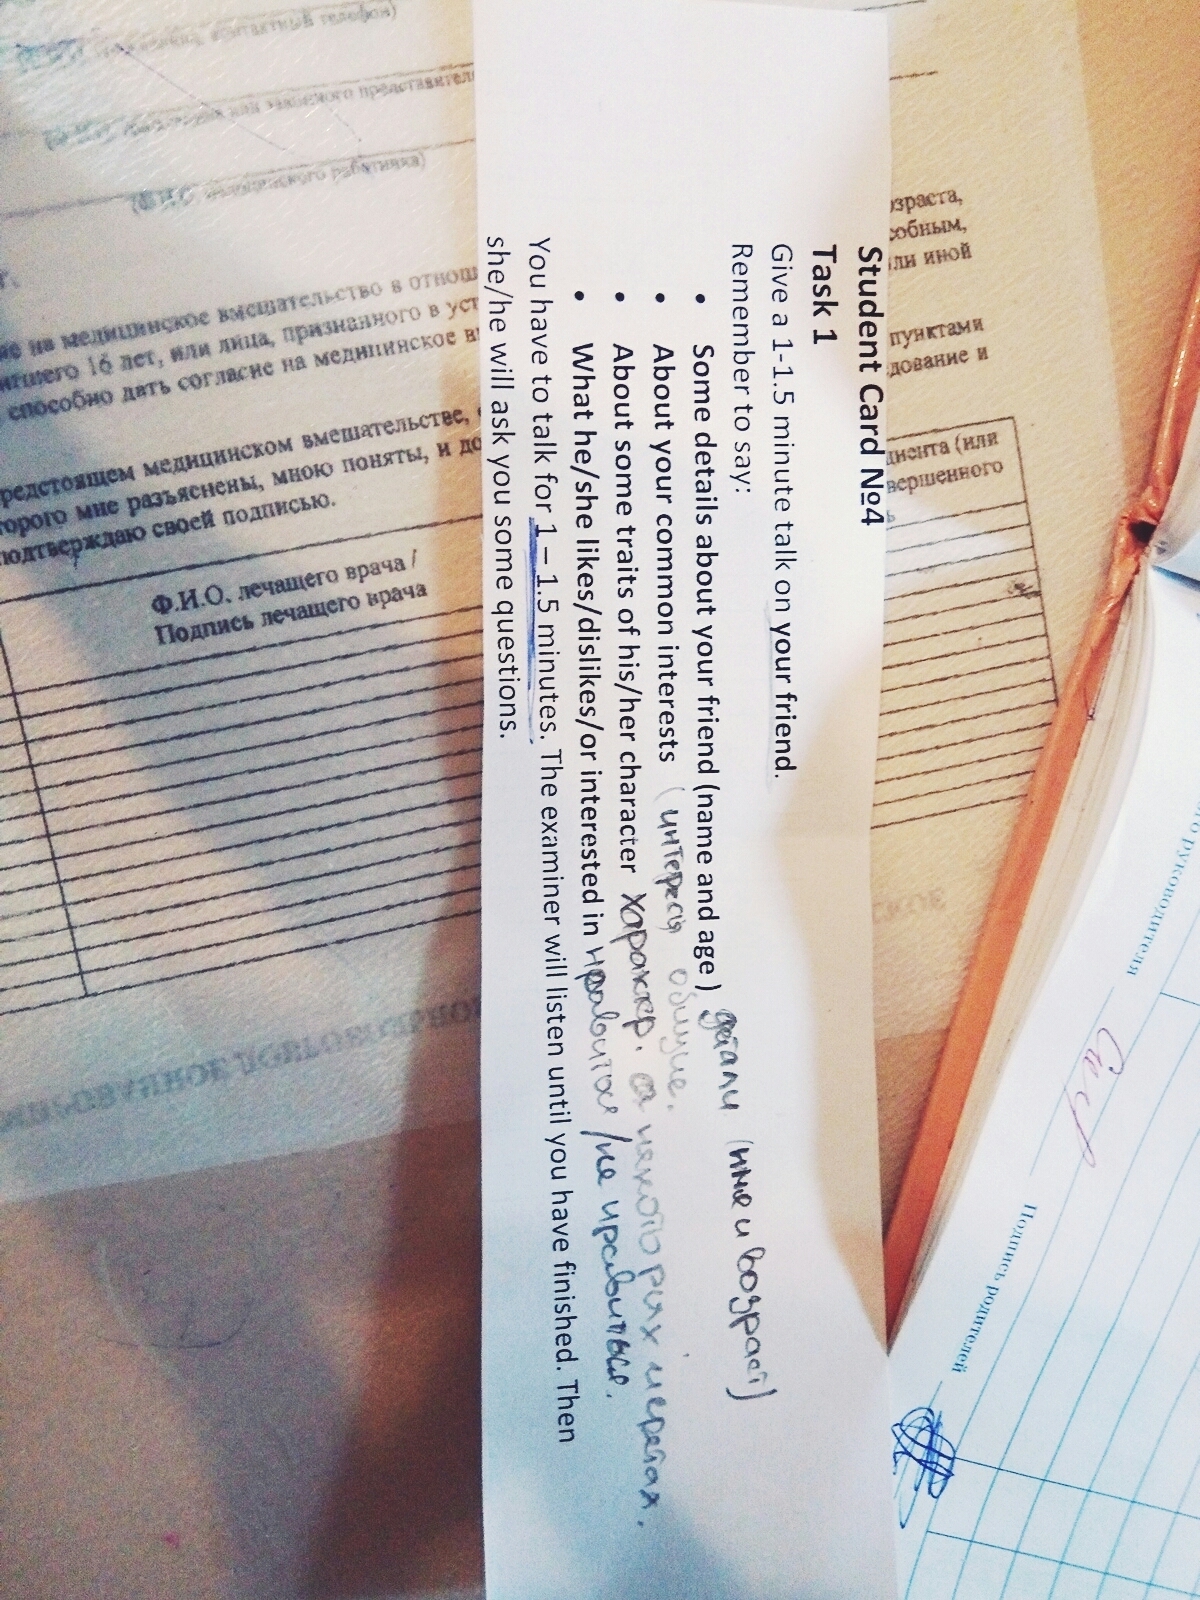 Student Card №4
Task 1
Give a 1-1.5 minute talk on your friend.
Remember to say:
• Some details about your friend (name and age) детали (имя и возраст)
• About your common interests (интересы общие.
• About some traits of his/her character характер. о некоторых чертах.
• What he/she likes/dislikes/or interested in нравится /не нравиться.
You have to talk for 1 – 1.5 minutes. The examiner will listen until you have finished. Then
she/he will ask you some questions.
контактный телефон)
или законного представителя
медицинского работника)
ие на медицинское вмешательство в отнош
игшего 16 лет, или лица, признанного в уст
способно дать согласие на медицинское в
редстоящем медицинском вмешательстве,
торого мне разъяснены, мною поняты, и до
подтверждаю своей подписью.
Ф.И.О. лечащего врача /
Подпись лечащего врача
озраста,
собным,
ли иной
пунктами
дование и
циента (или
вершенного
руководителя
Подпись родителей